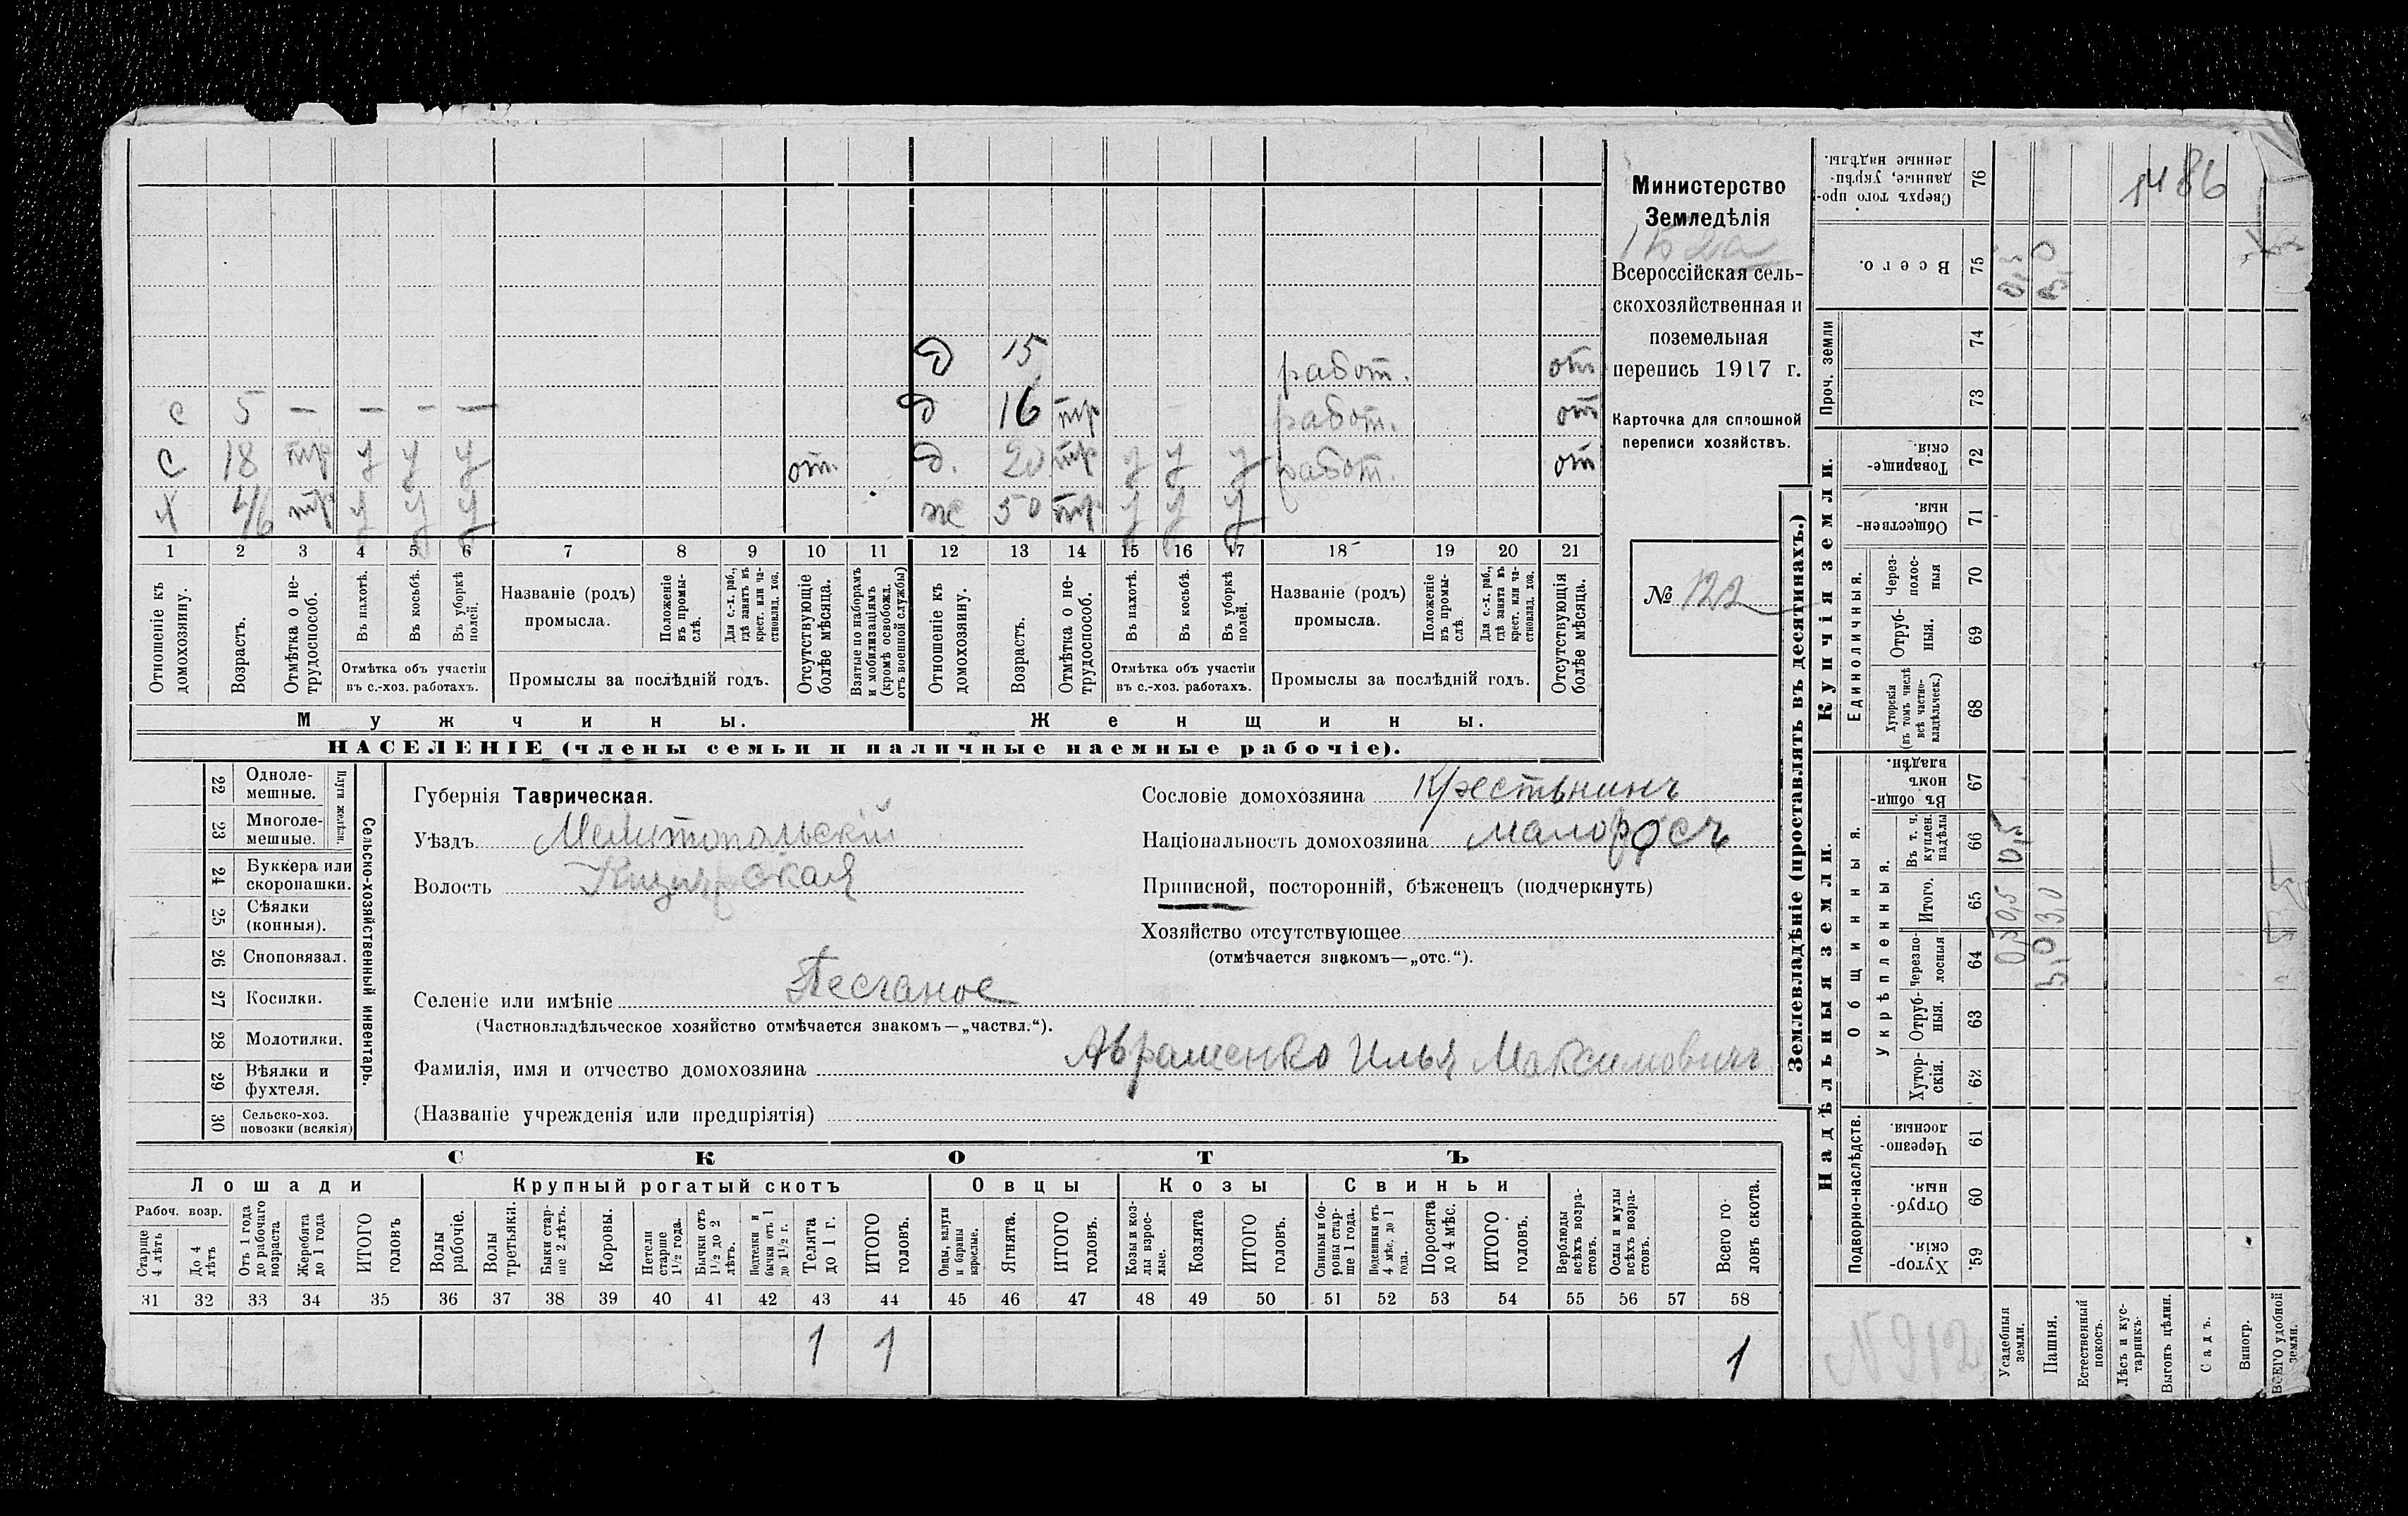 с 5 — — — — д 15 работ. от
д 16 тр работ. от
с 18 тр у у у от. д. 20 тр у у у работ. от
х 46 тр у у у ж 50 тр у у у
1 2 3 4 5 6 7 8 9 10 11 12 13 14 15 16 17 18 19 20 21
Отношеніе къ домохозяину.
Возрастъ.
Отмѣтка о нетрудоспособ.
Въ пахотѣ.
Въ косьбѣ.
Въ уборкѣ полей.
Отмѣтка объ участіи
въ с.-хоз. работахъ.
Названіе (родъ)
промысла.
Положеніе въ промыслѣ.
Для с.-х. раб., гдѣ занятъ въ крест. или частновлад. хоз.
Промыслы за послѣдній годъ.
Отсутствующіе болѣе мѣсяца.
Взятые по наборамъ и мобилизаціямъ (кромѣ освобожд. отъ военной службы)
Отношеніе къ домохозяину.
Возрастъ.
Отмѣтка о нетрудоспособ.
Въ пахотѣ.
Въ косьбѣ.
Въ уборкѣ полей.
Отмѣтка объ участіи
въ с.-хоз. работахъ.
Названіе (родъ)
промысла.
Положеніе въ промыслѣ.
Для с.-х. раб., гдѣ занята въ крест. или частновлад. хоз.
Промыслы за послѣдній годъ.
Отсутствующія болѣе мѣсяца.
Мужчины. Женщины.
НАСЕЛЕНІЕ (члены семьи и наличные наемные рабочіе).
Министерство
Земледѣлія
Всероссійская сель-
скохозяйственная и
поземельная
перепись 1917 г.
Карточка для сплошной
переписи хозяйствъ.
№ 122
22 Одноле-
мешные.
23 Многоле-
мешные.
Плуги желѣзн.
24 Буккера или
скоропашки.
25 Сѣялки
(конныя).
26 Сноповязал.
27 Косилки.
28 Молотилки.
29 Вѣялки и
фухтеля.
30 Сельско-хоз.
повозки (всякія)
Сельско-хозяйственный инвентарь.
Губернія Таврическая.
Уѣздъ Мелитопольскій
Волость Кизіярская
Сословіе домохозяина Крестьнинъ
Національность домохозяина малороссъ
Приписной, посторонній, бѣженецъ (подчеркнуть)
Хозяйство отсутствующее
(отмѣчается знакомъ—„отс.“).
Селеніе или имѣніе Песчаное
(Частновладѣльческое хозяйство отмѣчается знакомъ—„частвл.“).
Фамилія, имя и отчество домохозяина Авраменко Илья Максимовичъ
(Названіе учрежденія или предпріятія)
СКОТЪ
Лошади Крупный рогатый скотъ Овцы Козы Свиньи
Рабоч. возр.
Старше 4 лѣтъ
До 4 лѣтъ
Отъ 1 года до рабочаго возраста
Жеребята до 1 года
ИТОГО головъ
Волы рабочіе.
Волы третьяки.
Быки старше 2 лѣтъ.
Коровы.
Нетели старше 1½ года.
Бычки отъ 1½ до 2 лѣтъ.
Подтелки и бычки отъ 1 до 1½ г.
Телята до 1 г.
ИТОГО головъ.
Овцы, валухи и бараны взрослые.
Ягнята.
ИТОГО головъ.
Козы и козлы взрослые.
Козлята
ИТОГО головъ.
Свиньи и боровы старше 1 года.
Подсвинки отъ 4 мѣс. до 1 года.
Поросята до 4 мѣс.
ИТОГО головъ.
Верблюды всѣхъ возрастовъ.
Ослы и мулы всѣхъ возрастовъ.
Всего головъ скота.
31 32 33 34 35 36 37 38 39 40 41 42 43 44 45 46 47 48 49 50 51 52 53 54 55 56 57 58
1 1 1
Землевладѣніе (проставлять въ десятинахъ.)
Надѣльныя земли. Купчія земли. Проч. земли
Подворно-наслѣдств. Общинныя. Единоличныя.
Укрѣпленныя.
59 Хуторскія.
60 Отрубныя.
61 Черезполосныя.
62 Хуторскія.
63 Отрубныя.
64 Черезполосная
65 Итого.
66 Въ т. ч. куплен. надѣлы
67 Въ общинномъ владѣн.
68 Хуторскія (въ томъ числѣ всѣ частновладѣльческ.)
69 Отрубныя.
70 Черезполосныя
71 Общественныя.
72 Товарищескія.
73 74
75 Всего.
76 Сверхъ того проданные, укрѣпленные надѣлы.
Усадебныя земли. 0,5 0,5 0,5 0,5
Пашня. 3,0 3,0 3,0
Естественный покосъ.
Лѣсъ и кустарникъ.
Выгонъ цѣлин.
Садъ.
Виногр.
ВСЕГО удобной земли.
1486
№ 912